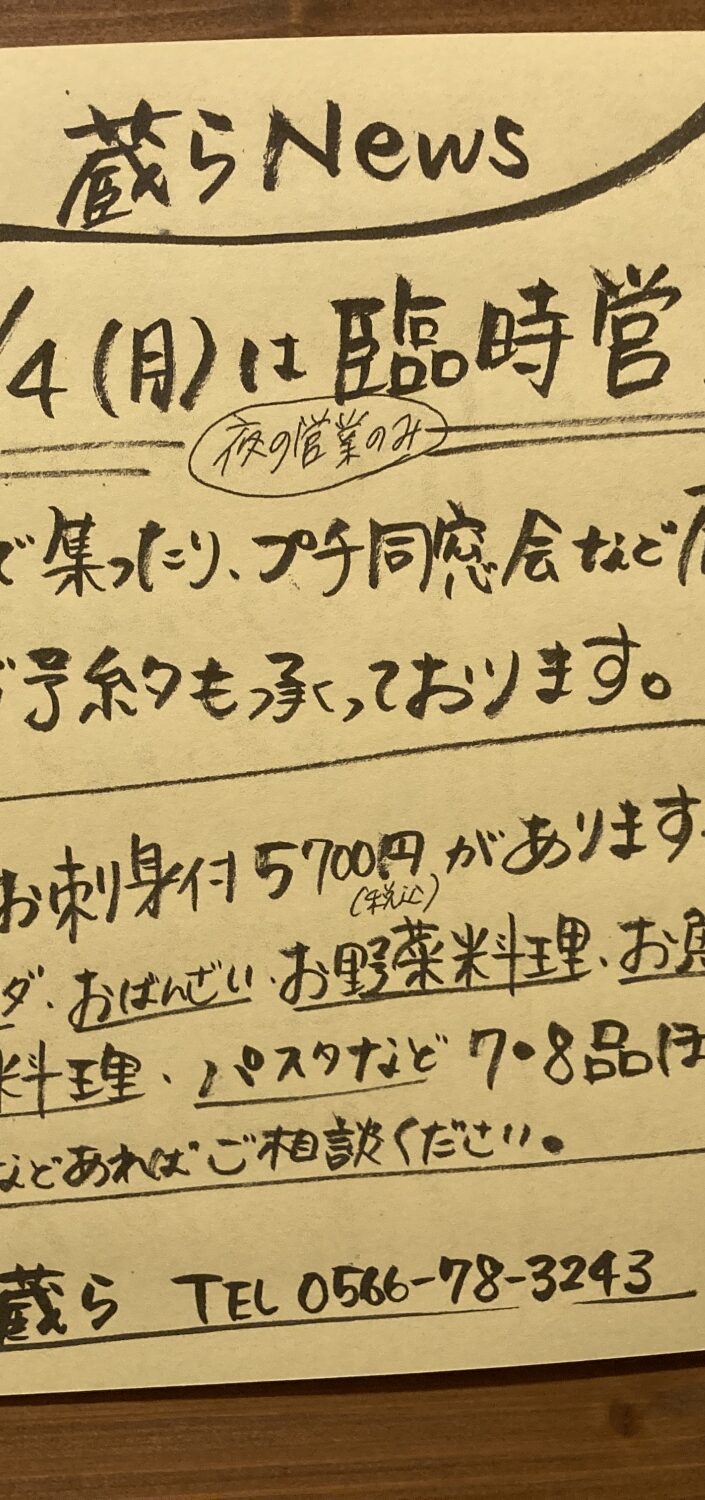 蔵らNews
/4(月)は臨時営
夜の営業のみ
で集ったり、プチ同窓会など
ご予約も承っております。
お刺身付5700円があります
(税込)
ダ・おばんざい・お野菜料理、お魚
料理・パスタなど7・8品ほ
などあればご相談ください。
蔵ら TEL 0566-78-3243